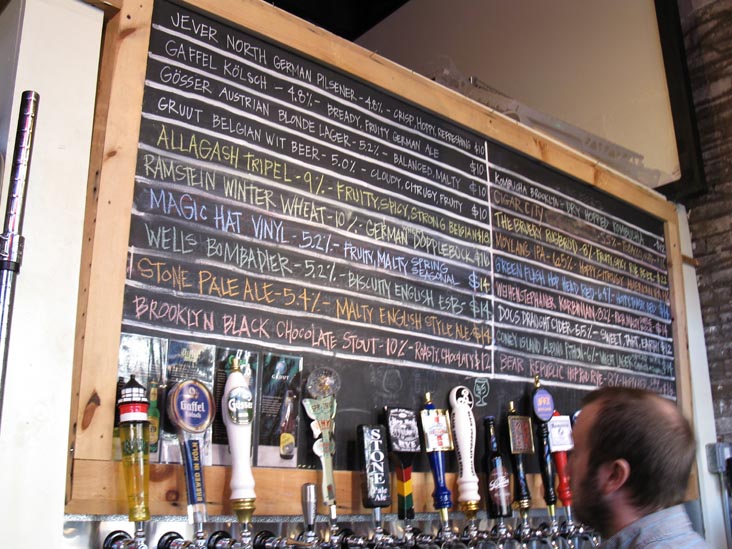 JEVER NORTH GERMAN PILSENER - 4.8% - CRISP, HOPPY, REFRESHING $10
GAFFEL KÖLSCH - 4.8% - BREADY, FRUITY GERMAN ALE $10
GÖSSER AUSTRIAN BLONDE LAGER - 5.2% - BALANCED, MALTY $10
GRUUT BELGIAN WIT BEER - 5.0% - CLOUDY, CITRUSY, FRUITY $10
ALLAGASH TRIPEL - 9% - FRUITY, SPICY, STRONG BELGIAN
RAMSTEIN WINTER WHEAT - 10% - GERMAN DOPPLEBOCK $16
MAGIC HAT VINYL - 5.2% - FRUITY, MALTY SPRING SEASONAL $14
WELLS BOMBADIER - 5.2% - BISCUITY ENGLISH ESB - $14
STONE PALE ALE - 5.4% - MALTY ENGLISH STYLE ALE $14
BROOKLYN BLACK CHOCOLATE STOUT - 10% - ROASTY, CHOCOLATY $12
KOMBUCHA BROOKLYN - DRY HOPPED KOMBUCHA
CIGAR CITY
THE BRUERY RUGBROD - 8% - RYE BEER
MOYLANS IPA - 6.5% - HOPPY
GREEN FLASH HOP HEAD RED
WEIHENSTEPHANER KORBINIAN
DOCS DRAUGHT CIDER - 5.5% - SWEET, TART
CONEY ISLAND ALBINO PYTHON
BEAR REPUBLIC HOP ROD RYE - 8%
Gaffel
Kölsch
BREWED IN KÖLN
Gösser
STONE
Pale Ale
RYE
GRUUT